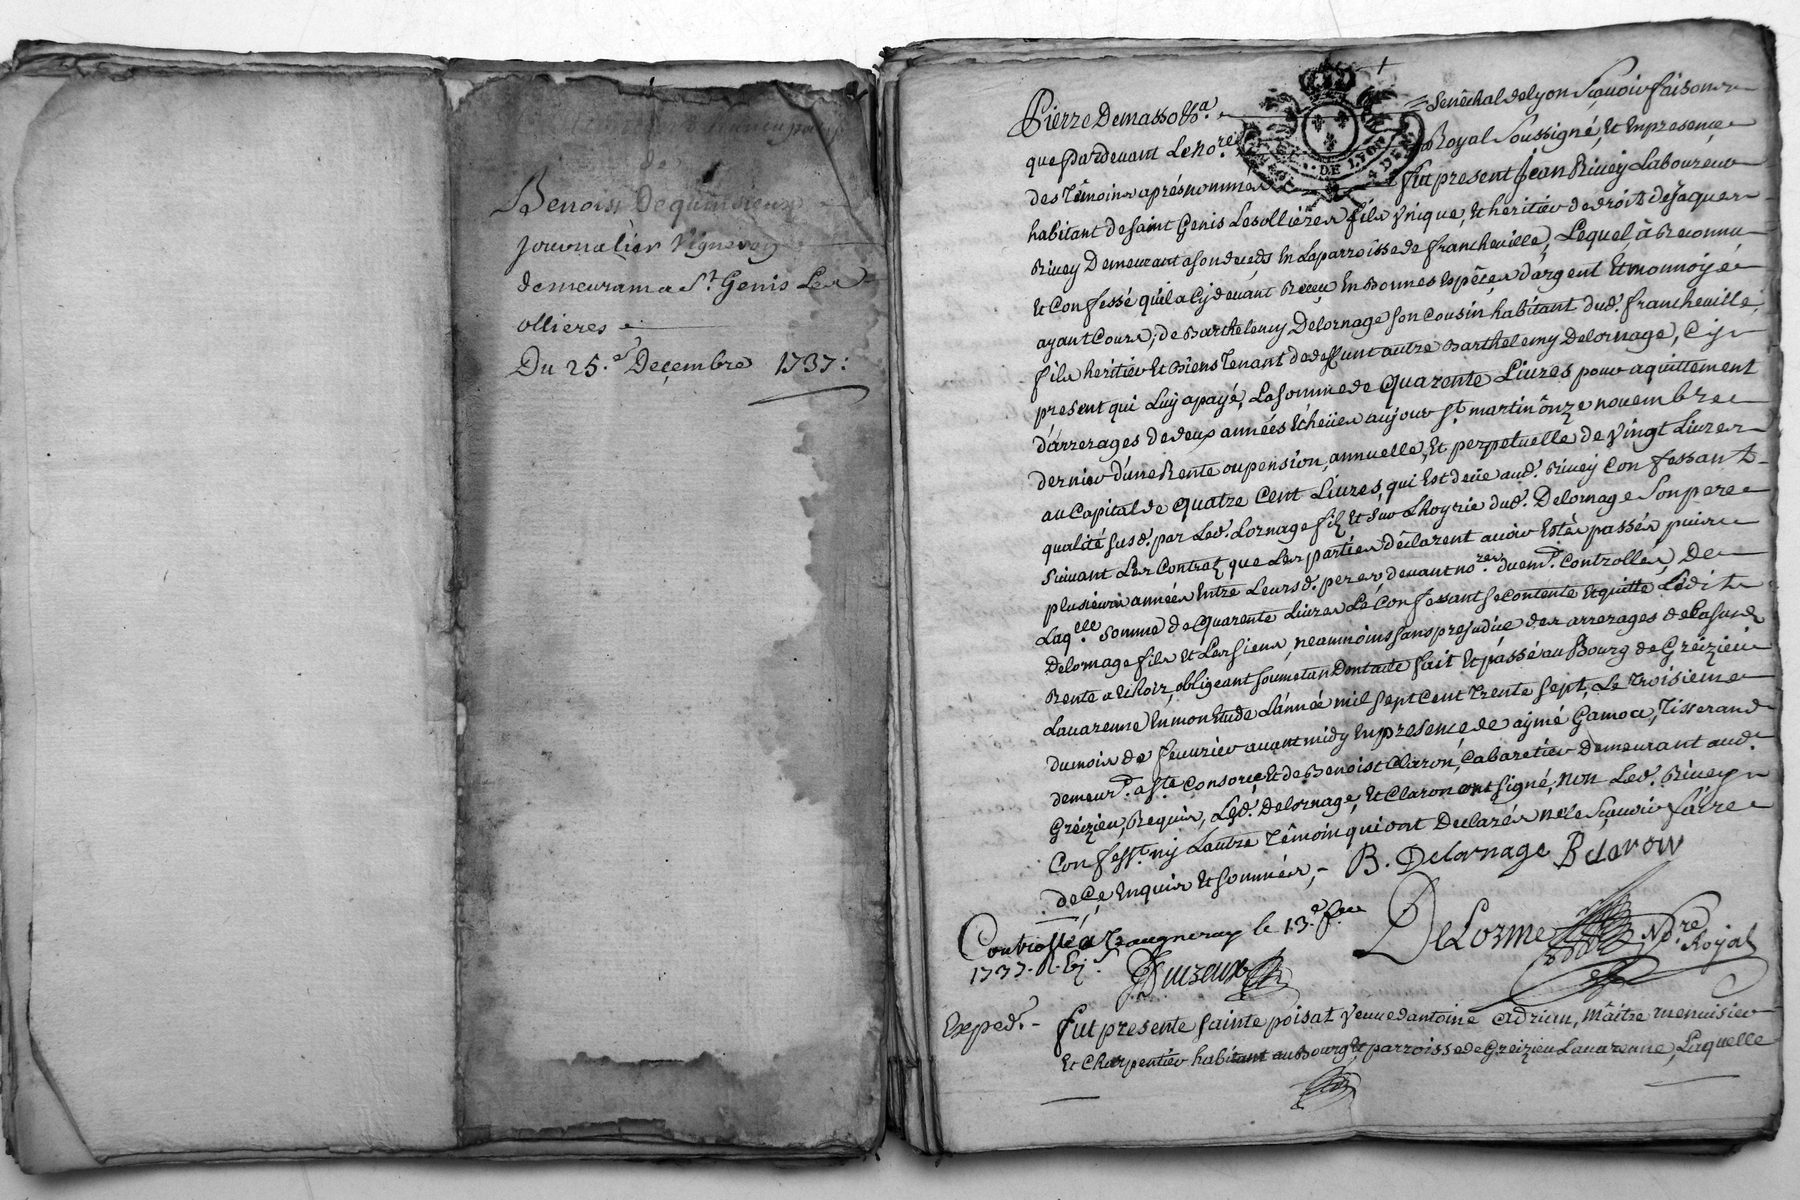 de
Benoist Dequinsieux
journalier Vigneron
demeurant a St. Genis Les
ollieres
Du 25.e Decembre 1737:
Pierre Demasso &a. Senéchal de Lyon Sçavoir faisons
que Pardevant Le no.re Royal Soussigné, Et En presence
des Témoins aprés nommés fut present Jean Rivey Laboureur
habitant de Saint Genis Lesollières fils Vnique, et heritier de droit de Jaques
Rivey Demeurant a son deceds En La parroisse de francheville, Lequel à Reconnu
et Confessé qu'il a Cy devant Receu En Bonnes Espêces d'argent Et monnoye
ayant Cours, de Barthelemy Delornage Son Cousin habitant dud. francheville,
fils heritier Et Biens Tenant de deffunt autre Barthelemy Delornage, Cy
present qui Luy a payé, La Somme de Quarente Livres pour aquittement
d'arrerages de deux années Echeües au jour St. martin ônze novembre
dernier d'une Rente ou pension, annuelle, Et perpetuelle de Vingt Livres
au Capital de Quatre Cent Livres, qui Est deüe aud. Rivey Confessant
qualité susd. par Led. Lornage fils Et Sur Lhoyrie dud. Delornage Son pere
Suivant Les Contrats que Les parties déclarent avoir Estés passés puis
plusieurs années Entre Leursd. peres, devant no.res duem.t Controllés, De
Laq.elle Somme de Quarente Livres Le Confessant se contente Et quitte Ledit
Delornage fils et Les Siens, neaumoins sans prejudice des arrerages de La susd.
Rente a Echoir, obligeant Soumetan Dont acte fait Et passé au Bourg de Grêizieu
Lavarenne En mon Etude L'année mil Sept Cent Trente Sept, Le Troisieme
du mois de fevrier avant midy En presence de aymé Gamoa, Tisserand
demeur.t a Ste Consorce, Et de Benoist Claron, Cabaretier demeurant aud.
Grêizieu, Requis, Led. Delornage, Et Claron ont Signé, non Led. Rivey
Confess.t ny L'autre Témoin qui ont Declarés ne le Sçavoir faire
de Ce Enquis Et Sommés,
B. Delornage B Claron
Controllé a Vaugneray le 13.e f.er
1737. R.
DeLorme No.re Royal
Exped. - fut presente Sainte poisat Veuve d'antoine adrian, Mâitre menuisier
Et Charpentier habitant au Bourg Et parroisse de Grêizieu Lavarenne, Laquelle